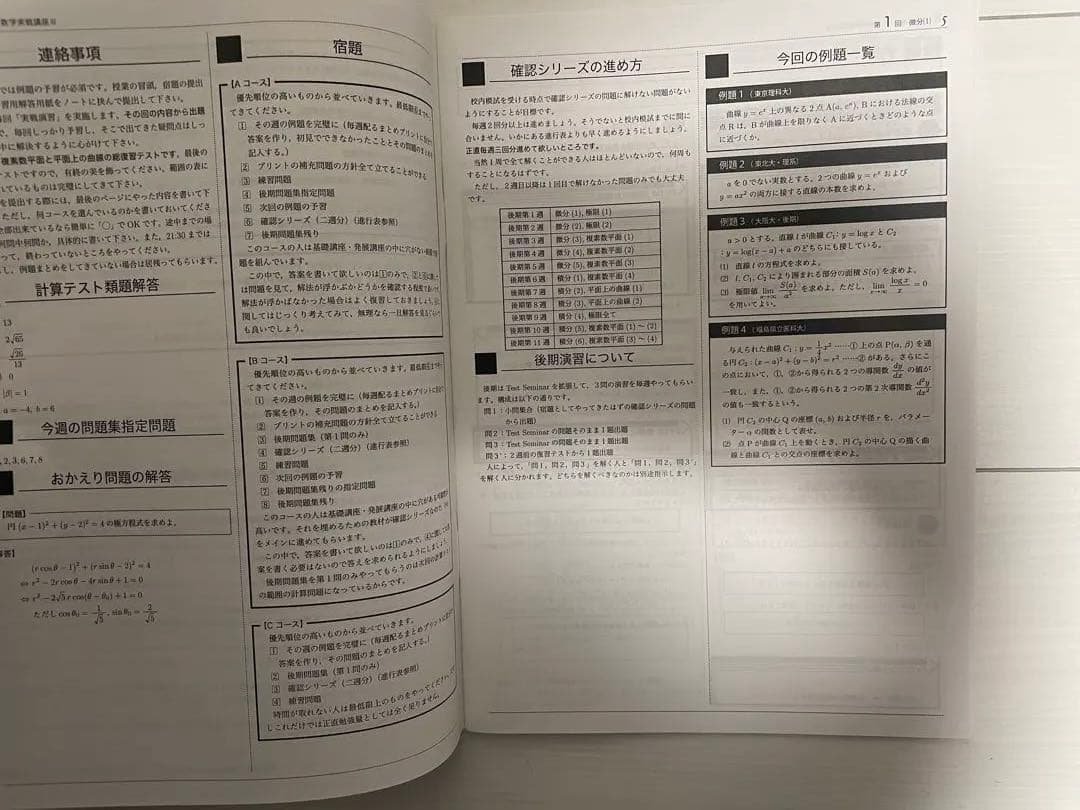 数学実戦講座Ⅲ
連絡事項
では例題の予習が必須です。授業の冒頭、宿題の提出
習用解答用紙をノートに挟んで提出して下さい。
回「実戦演習」を実施します。その回の内容から出題
で、毎回しっかり予習し、そこで出てきた疑問点はしっ
中に解決するように心がけて下さい。
複素数平面と平面上の曲線の総復習テストです。最後の
ーストですので、有終の美を飾ってください。範囲の表に
れているものは完璧にしてきて下さい。
を提出する際には、最後のページにやった内容を書いて下
ただし、何コースを選んでいるのかを書いておいてください
全部出来ているなら簡単に「○」でOKです。途中までの場
何問中何問か、具体的に書いて下さい。また、21:30までは
って、終わっていないところをやってください。
し、例題まとめをしてきていない場合は居残ってもらいます。
計算テスト類題解答
13
2√65
√26/13
0
|d| = 1
a = −4, b = 6
今週の問題集指定問題
, 2, 3, 6, 7, 8
おかえり問題の解答
【問題】
円 (x − 1)² + (y − 2)² = 4 の極方程式を求めよ。
解答】
(r cos θ − 1)² + (r sin θ − 2)² = 4
⇔ r² − 2r cos θ − 4r sin θ + 1 = 0
⇔ r² − 2√5 r cos(θ − θ₀) + 1 = 0
ただし cos θ₀ = 1/√5, sin θ₀ = 2/√5
宿題
【A コース】
優先順位の高いものから並べていきます。最低限
てきてください。
① その週の例題を完璧に（毎週配るまとめプリントに
答案を作り、初見でできなかったこととその問題のま
記入する。）
② プリントの補充問題の方針全て立てることができる
③ 練習問題
④ 後期問題集指定問題
⑤ 次回の例題の予習
⑥ 確認シリーズ（二週分）（進行表参照）
⑦ 後期問題集残り
このコースの人は基礎講座・発展講座の中に穴がない
題を組んでいます。
この中で、答案を書いて欲しいのは①のみで、
は問題を見て、解法が浮かぶかどうかを確認する程度で
解法が浮かばなかった場合はよく復習しておきましょう。
関してはじっくり考えてみて、無理なら一旦解答を見
も良いでしょう。
【B コース】
優先順位の高いものから並べていきます。最低限
① その週の例題を完璧に（毎週配るまとめプリントに
答案を作り、その問題のまとめを記入する。）
② プリントの補充問題の方針全て立てることができる
③ 後期問題集（第1問のみ）
④ 確認シリーズ（二週分）（進行表参照）
⑤ 練習問題
⑥ 次回の例題の予習
⑦ 後期問題集残りの指定問題
⑧ 後期問題集残り
このコースの人は基礎講座・発展講座の中に穴がある可能性が
高いです。それを埋めるための教材が確認シリーズなので、
をメインに進めてもらいます。
この中で、答案を書いて欲しいのは①のみで、④に関して
案を書く必要はないので答えを求められるようにしましょう。
後期問題集を第1問のみやってもらうのは次回の計算
の範囲の計算問題になっているからです。
【C コース】
優先順位の高いものから並べていきます。
① その週の例題を完璧に（毎週配るまとめプリントに
答案を作り、その問題のまとめを記入する。）
② 後期問題集（第1問のみ）
③ 確認シリーズ（二週分）（進行表参照）
④ 練習問題
時間が取れない人は最低限上のものをやってください。
しこれだけでは正直勉強量としては全く足りません。
第1回 微分(1) 5
確認シリーズの進め方
校内模試を受ける時点で確認シリーズの問題に解けない問題がない
ようにすることが目標です。
毎週2回分以上は進めましょう。そうでないと校内模試までに間に
合いません。いかにある進行表よりも早く進めるようにしましょう。
正直毎週三回分進めて欲しいところです。
当然1周で全て解くことができる人はほとんどいないので、何周も
することになるはずです。
ただし、2週目以降は1回目で解けなかった問題のみでも大丈夫
です。
後期第1週 微分 (1), 極限 (1)
後期第2週 微分 (2), 極限 (2)
後期第3週 微分 (3), 複素数平面 (1)
後期第4週 微分 (4), 複素数平面 (2)
後期第5週 微分 (5), 複素数平面 (3)
後期第6週 積分 (1), 複素数平面 (4)
後期第7週 積分 (2), 平面上の曲線 (1)
後期第8週 積分 (3), 平面上の曲線 (2)
後期第9週 積分 (4), 極限全て
後期第10週 積分 (5), 複素数平面 (1) ～ (2)
後期第11週 積分 (6), 複素数平面 (3) ～ (4)
後期演習について
後期は Test Seminar を拡張して、3問の演習を毎週やってもらい
ます。構成は以下の通りです。
問1：小問集合（宿題としてやってきたはずの確認シリーズの問題
から出題）
問2：Test Seminar の問題そのまま1題出題
問3：Test Seminar の問題そのまま1題出題
問3'：2週前の復習テストから1題出題
人によって、「問1, 問2, 問3」を解く人と「問1, 問2, 問3'」
を解く人に分かれます。どちらを解くべきなのかは別途指示します。
今回の例題一覧
例題1（東京理科大）
曲線 y = eˣ 上の異なる2点 A(a, eᵃ), B における法線の交
点 R は、B が曲線上を限りなく A に近づくときどのような点
に近づくか。
例題2（東北大・理系）
a を0でない実数とする。2つの曲線 y = eˣ および
y = ax² の両方に接する直線の本数を求めよ。
例題3（大阪大・後期）
a > 0 とする。直線 l が曲線 C₁ : y = log x と C₂
: y = log(x − a) + a のどちらにも接している。
(1) 直線 l の方程式を求めよ。
(2) l, C₁, C₂ により囲まれる部分の面積 S(a) を求めよ。
(3) 極限値 lim a→∞ S(a)/a² を求めよ。ただし、lim x→∞ log x/x = 0
を用いてよい。
例題4（福島県立医科大）
与えられた曲線 C₁ : y = 1/4 x² ……① 上の点 P(α, β) を通
る円 C₂ : (x − a)² + (y − b)² = r² ……② がある。さらにこ
の点において、①、②から得られる2つの導関数 dy/dx の値が
一致し、また、①、②から得られる2つの第2次導関数 d²y/dx²
の値も一致するという。
(1) 円 C₂ の中心 Q の座標 (a, b) および半径 r を、パラメー
ター α の関数として表せ。
(2) 点 P が曲線 C₁ 上を動くとき、円 C₂ の中心 Q の描く曲
線と曲線 C₁ との交点の座標を求めよ。